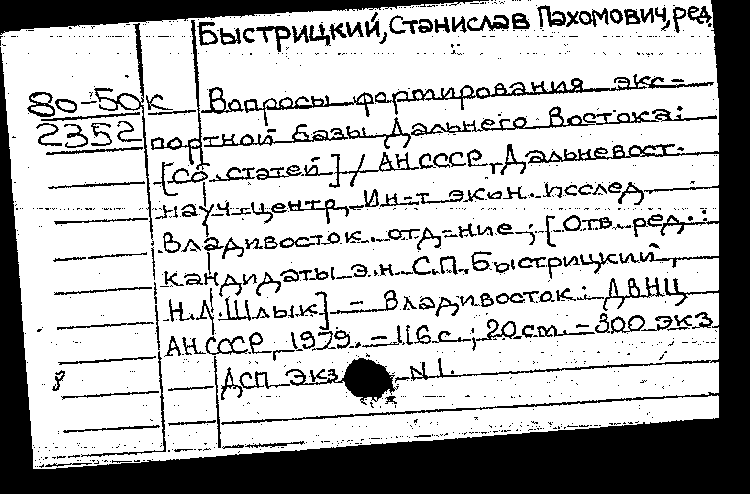 Быстрицкий, Станислав Пахомович, ред.
80-50к Вопросы формирования экс-
2352 портной базы Дальнего Востока:
[Сб. статей] / АН СССР, Дальневост.
науч. центр, Ин-т экон. исслед.
Владивосток. отд-ние; [Отв. ред.:
кандидаты э.н. С.П. Быстрицкий,
Н.Л. Шлык]. - Владивосток: ДВНЦ
АН СССР, 1979. - 116 с.; 20 см. - 300 экз
ДСП экз N 1.
8